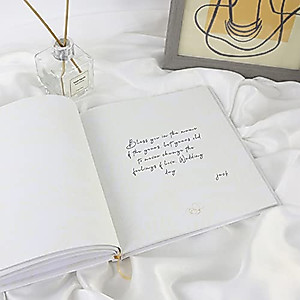 Bless you in the name
of the years, but years old
to never change the
feelings of love Wedding
day
jack